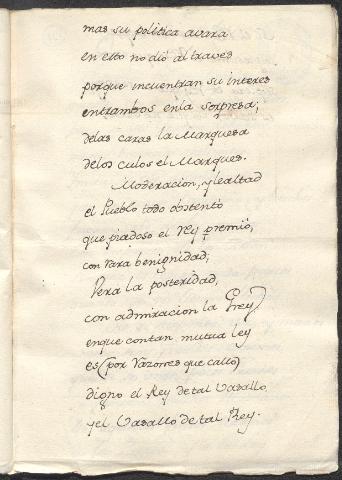 mas su politica avara
en esto no dió al traves
porque incuentran su interes
entrambos enla sorpresa;
delas caras la Marquesa
delos culos el Marques.
Moderacion, y lealtad
el Pueblo todo obstentó
que piadoso el rey premió,
con rara benignidad;
Vera la posteridad,
con admiracion la Grey
enque contan mutua ley
es (por razones que callo)
digno el Rey de tal Vasallo
y el Vasallo de tal Rey.